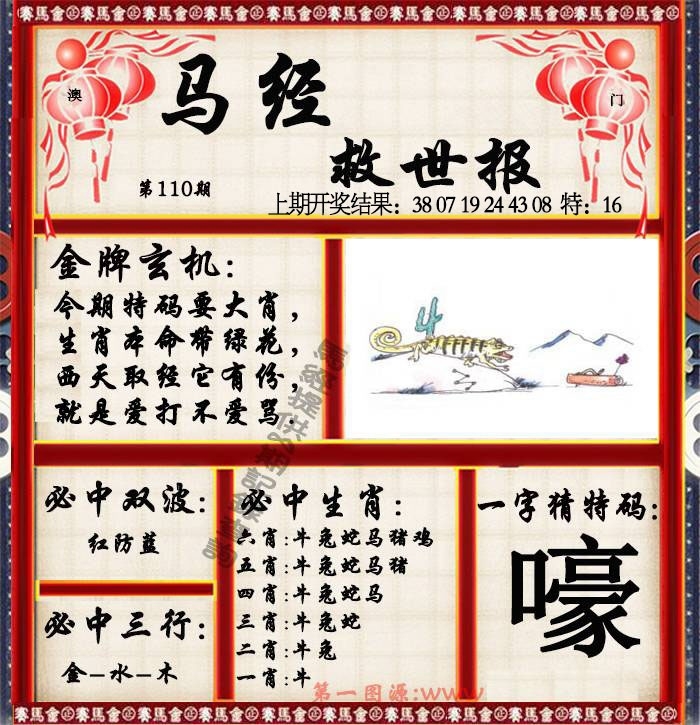 賽馬會金賽馬會金賽馬會金賽馬會金賽馬會金
澳
门
马经
救世报
第110期
上期开奖结果：38 07 19 24 43 08 特：16
金牌玄机：
今期特码要大肖，
生肖本命带绿花，
西天取经它有份，
就是爱打不爱骂.
4
必中双波：
红防蓝
必中三行：
金-水-木
必中生肖：
六肖:牛兔蛇马猪鸡
五肖:牛兔蛇马猪
四肖:牛兔蛇马
三肖:牛兔蛇
二肖:牛兔
一肖:牛
一字猜特码：
嚎
第一图源:www